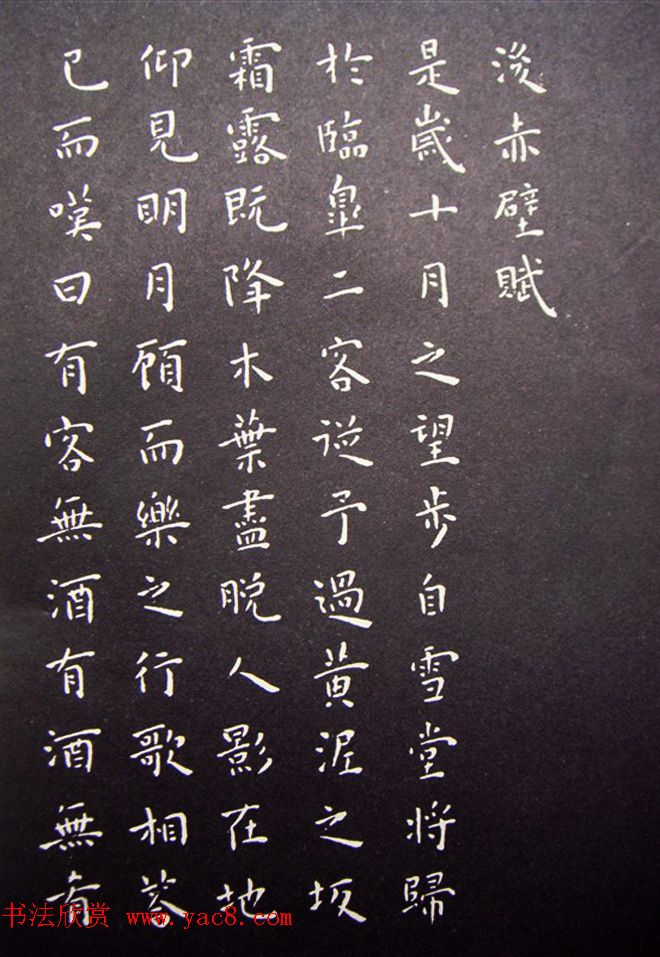 後赤壁賦
是歲十月之望步自雪堂將歸
於臨皋二客從予過黃泥之坂
霜露既降木葉盡脫人影在地
仰見明月顧而樂之行歌相荅
已而嘆曰有客無酒有酒無肴
书法欣赏 www.yac8.com